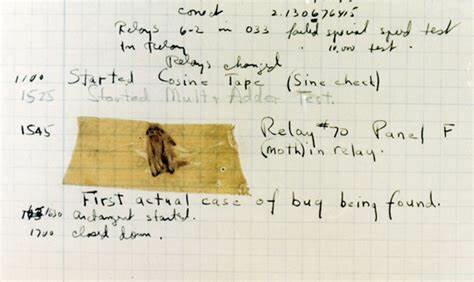 conect 2.130676415
Relays 6-2 in 033 failed special speed test
In Relay " 10,000 test.
Relays changed
1100 Started Cosine Tape (Sine check)
1525 Started Mult+ Adder Test.
1545 Relay #70 Panel F
(moth) in relay.
First actual case of bug being found.
1630 Antangent started.
1700 closed down.